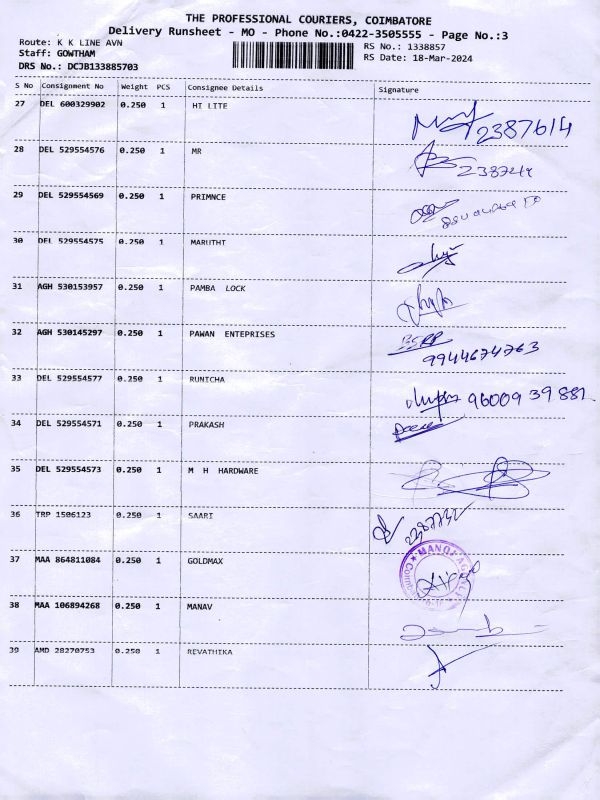 THE PROFESSIONAL COURIERS, COIMBATORE
Delivery Runsheet - MO - Phone No.:0422-3505555 - Page No.:3
Route: K K LINE AVN
RS No.: 1338857
Staff: GOWTHAM
RS Date: 18-Mar-2024
DRS No.: DCJB133885703
S No Consignment No Weight PCS Consignee Details Signature
27 DEL 600329902 0.250 1 HI LITE 2387614
28 DEL 529554576 0.250 1 MR
29 DEL 529554569 0.250 1 PRIMNCE
30 DEL 529554575 0.250 1 MARUTHT
31 AGH 530153957 0.250 1 PAMBA LOCK
32 AGH 530145297 0.250 1 PAWAN ENTEPRISES
9944674763
33 DEL 529554577 0.250 1 RUNICHA 9600939881
34 DEL 529554571 0.250 1 PRAKASH
35 DEL 529554573 0.250 1 M H HARDWARE
36 TRP 1506123 0.250 1 SAARI
37 MAA 864811084 0.250 1 GOLDMAX
38 MAA 106894268 0.250 1 MANAV
39 AMD 28270753 0.250 1 REVATHIKA